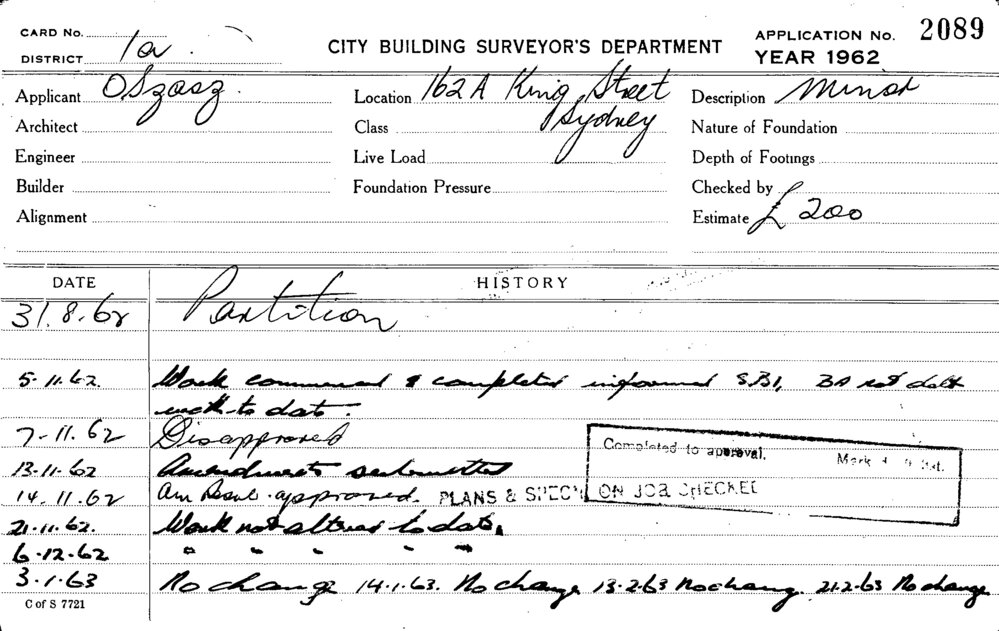 CARD No.
DISTRICT 1a
CITY BUILDING SURVEYOR'S DEPARTMENT
APPLICATION No. 2089
YEAR 1962
Applicant O Szasz
Location 162A King Street
Sydney
Description Minor
Architect
Class
Nature of Foundation
Engineer
Live Load
Depth of Footings
Builder
Foundation Pressure
Checked by
Alignment
Estimate £ 200
DATE
HISTORY
31.8.62 Partition
5.11.62. Work commenced & completed informed S.B.I, BA not dealt
with to date.
7-11.62 Disapproved
Completed to approval.
13-11-62 Amendments submitted
14.11.62 Am approved. PLANS & SPEC'N ON JOB CHECKED
21-11.62. Work not altered to date.
6-12-62 " " " " "
3.1.63 No change 14.1.63. No change 13-2-63 No change. 21-2-63 No change
C of S 7721